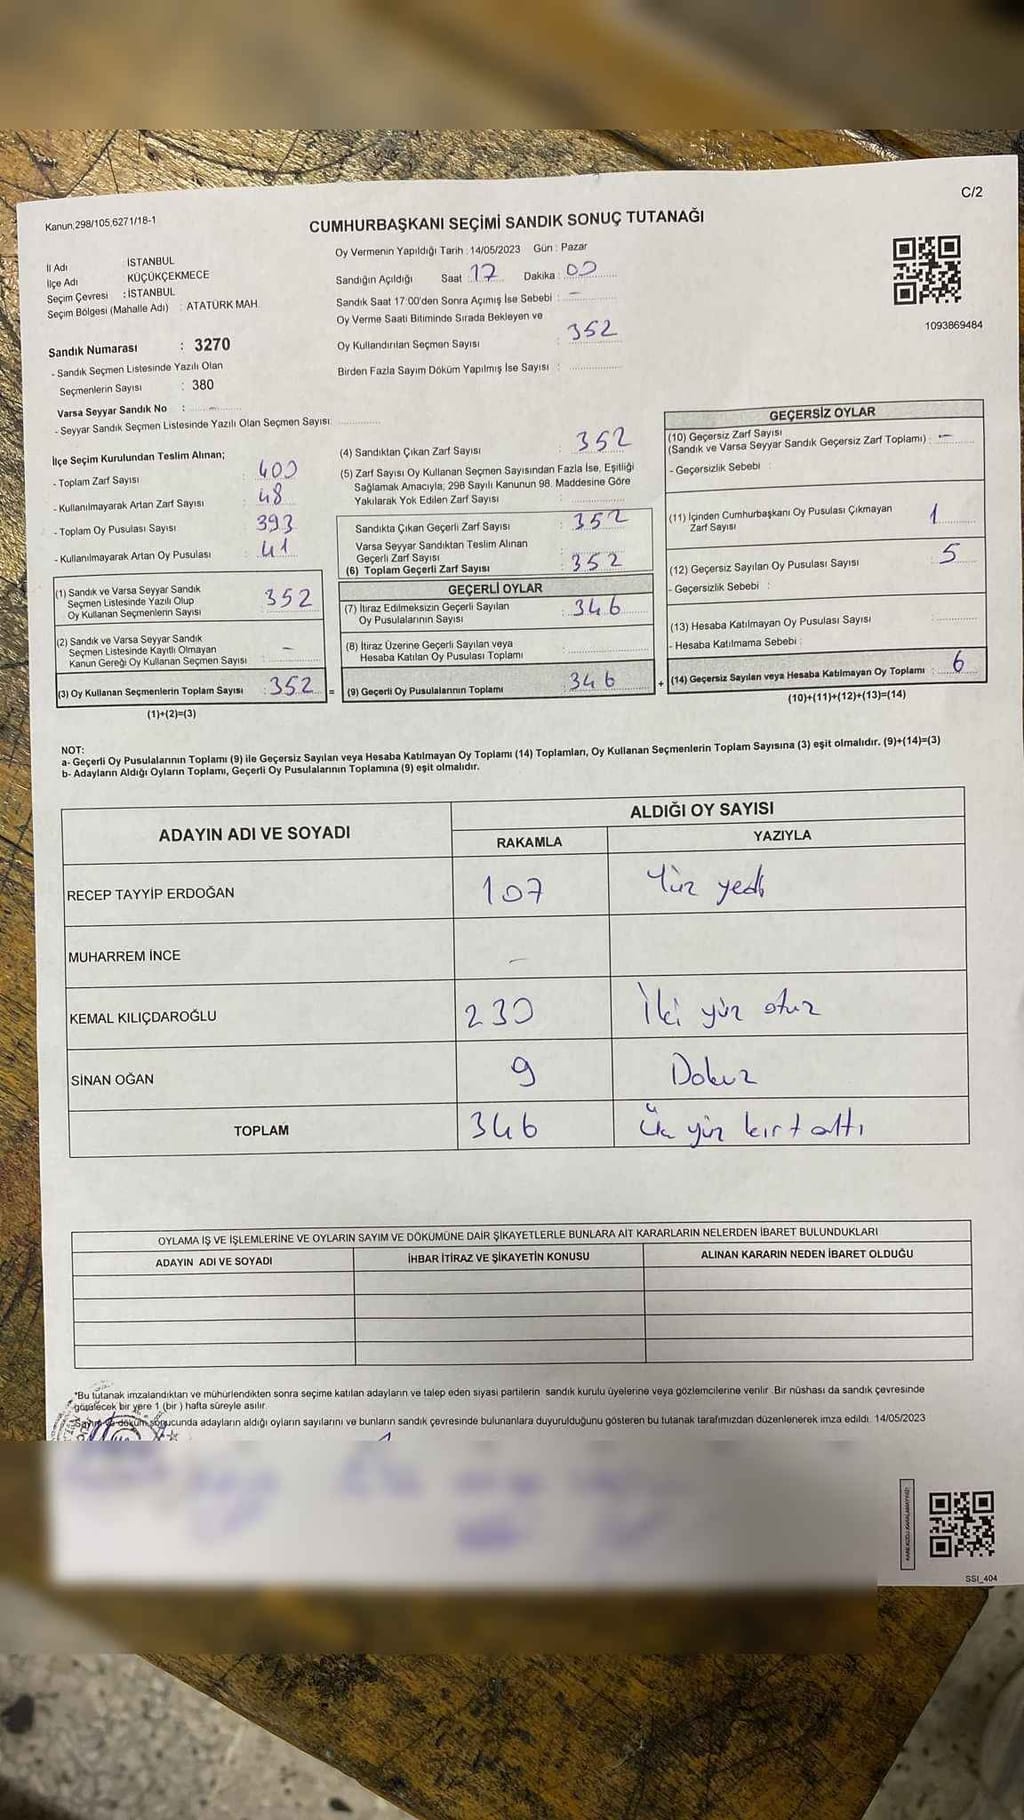 C/2
Kanun,298/105,6271/18-1
CUMHURBAŞKANI SEÇİMİ SANDIK SONUÇ TUTANAĞI
Oy Vermenin Yapıldığı Tarih : 14/05/2023 Gün : Pazar
İl Adı İSTANBUL
İlçe Adı KÜÇÜKÇEKMECE
Seçim Çevresi : İSTANBUL
Seçim Bölgesi (Mahalle Adı) : ATATÜRK MAH.
Sandığın Açıldığı Saat : 17 Dakika : 00
Sandık Saat 17:00'den Sonra Açımış İse Sebebi : -
Oy Verme Saati Bitiminde Sırada Bekleyen ve
Oy Kullandırılan Seçmen Sayısı : 352
Birden Fazla Sayım Döküm Yapılmış İse Sayısı :
1093869484
Sandık Numarası : 3270
- Sandık Seçmen Listesinde Yazılı Olan
Seçmenlerin Sayısı : 380
Varsa Seyyar Sandık No : -
- Seyyar Sandık Seçmen Listesinde Yazılı Olan Seçmen Sayısı:
İlçe Seçim Kurulundan Teslim Alınan;
- Toplam Zarf Sayısı : 400
- Kullanılmayarak Artan Zarf Sayısı : 48
- Toplam Oy Pusulası Sayısı : 393
- Kullanılmayarak Artan Oy Pusulası : 41
(1) Sandık ve Varsa Seyyar Sandık
Seçmen Listesinde Yazılı Olup
Oy Kullanan Seçmenlerin Sayısı : 352
(2) Sandık ve Varsa Seyyar Sandık
Seçmen Listesinde Kayıtlı Olmayan
Kanun Gereği Oy Kullanan Seçmen Sayısı : -
(3) Oy Kullanan Seçmenlerin Toplam Sayısı : 352 =
(1)+(2)=(3)
(4) Sandıktan Çıkan Zarf Sayısı : 352
(5) Zarf Sayısı Oy Kullanan Seçmen Sayısından Fazla İse, Eşitliği
Sağlamak Amacıyla; 298 Sayılı Kanunun 98. Maddesine Göre
Yakılarak Yok Edilen Zarf Sayısı :
Sandıkta Çıkan Geçerli Zarf Sayısı : 352
Varsa Seyyar Sandıktan Teslim Alınan
Geçerli Zarf Sayısı
(6) Toplam Geçerli Zarf Sayısı : 352
GEÇERLİ OYLAR
(7) İtiraz Edilmeksizin Geçerli Sayılan
Oy Pusulalarının Sayısı : 346
(8) İtiraz Üzerine Geçerli Sayılan veya
Hesaba Katılan Oy Pusulası Toplamı :
(9) Geçerli Oy Pusulalarının Toplamı : 346 +
GEÇERSİZ OYLAR
(10) Geçersiz Zarf Sayısı
(Sandık ve Varsa Seyyar Sandık Geçersiz Zarf Toplamı) : -
- Geçersizlik Sebebi :
(11) İçinden Cumhurbaşkanı Oy Pusulası Çıkmayan
Zarf Sayısı : 1
(12) Geçersiz Sayılan Oy Pusulası Sayısı : 5
- Geçersizlik Sebebi :
(13) Hesaba Katılmayan Oy Pusulası Sayısı :
- Hesaba Katılmama Sebebi :
(14) Geçersiz Sayılan veya Hesaba Katılmayan Oy Toplamı : 6
(10)+(11)+(12)+(13)=(14)
NOT:
a- Geçerli Oy Pusulalarının Toplamı (9) ile Geçersiz Sayılan veya Hesaba Katılmayan Oy Toplamı (14) Toplamları, Oy Kullanan Seçmenlerin Toplam Sayısına (3) eşit olmalıdır. (9)+(14)=(3)
b- Adayların Aldığı Oyların Toplamı, Geçerli Oy Pusulalarının Toplamına (9) eşit olmalıdır.
ADAYIN ADI VE SOYADI ALDIĞI OY SAYISI
RAKAMLA YAZIYLA
RECEP TAYYİP ERDOĞAN 107 Yüz yedi
MUHARREM İNCE -
KEMAL KILIÇDAROĞLU 230 İki yüz otuz
SİNAN OĞAN 9 Dokuz
TOPLAM 346 Üç yüz kırk altı
OYLAMA İŞ VE İŞLEMLERİNE VE OYLARIN SAYIM VE DÖKÜMÜNE DAİR ŞİKAYETLERLE BUNLARA AİT KARARLARIN NELERDEN İBARET BULUNDUKLARI
ADAYIN ADI VE SOYADI İHBAR İTİRAZ VE ŞİKAYETİN KONUSU ALINAN KARARIN NEDEN İBARET OLDUĞU
*Bu tutanak imzalandıktan ve mühürlendikten sonra seçime katılan adayların ve talep eden siyasi partilerin sandık kurulu üyelerine veya gözlemcilerine verilir. Bir nüshası da sandık çevresinde
görülecek bir yere 1 (bir ) hafta süreyle asılır.
Sayım ve döküm sonucunda adayların aldığı oyların sayılarını ve bunların sandık çevresinde bulunanlara duyurulduğunu gösteren bu tutanak tarafımızdan düzenlenerek imza edildi. 14/05/2023
SSI_404